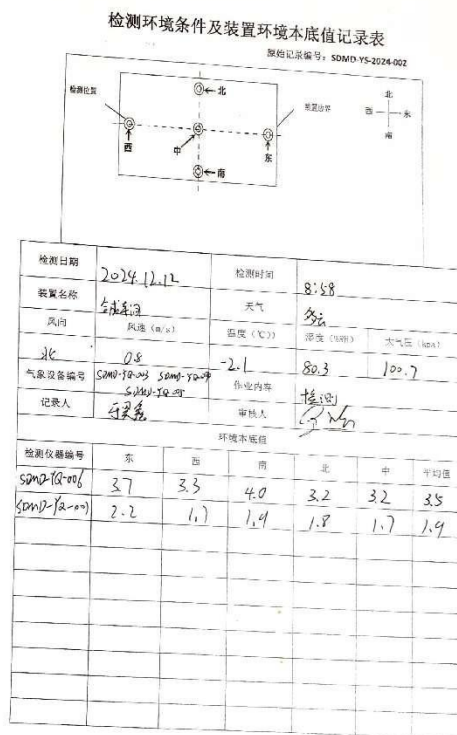 检测环境条件及装置环境本底值记录表
原始记录编号：SDMD-YS-2024-002
北
检测位置
装置边界
北
西
东
南
西
中
东
南
检测日期 2024.12.12 检测时间 8:58
装置名称 合成车间 天气 多云
风向 风速（m/s） 温度（℃） 湿度（%RH） 大气压（kpa）
北 0.8 -2.1 80.3 100.7
气象设备编号 SDMD-YQ-003 作业内容 检测
记录人 审核人
环境本底值
检测仪器编号 东 西 南 北 中 平均值
SDMD-YQ-006 3.7 3.3 4.0 3.2 3.2 3.5
2.2 1.7 1.9 1.8 1.7 1.9